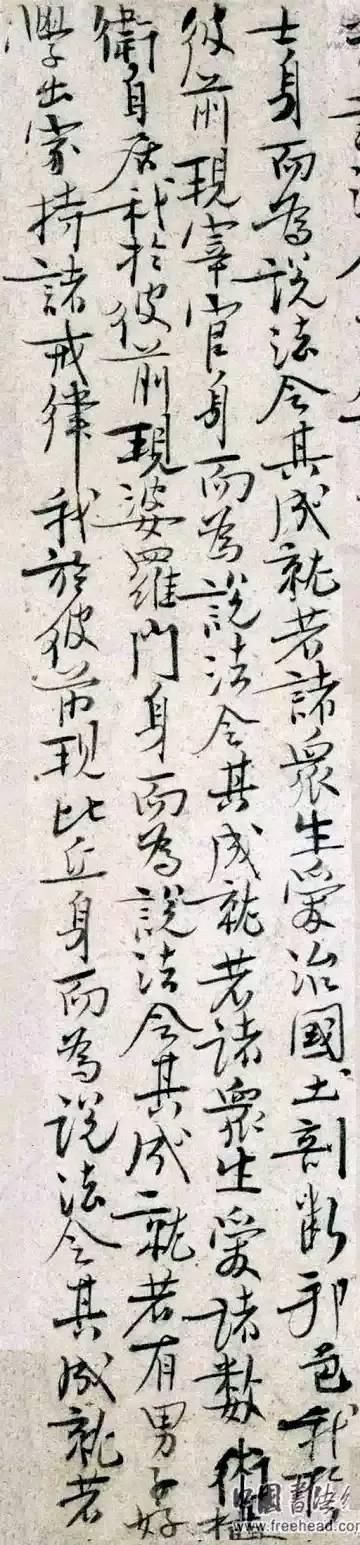 士身而為說法令其成就若諸眾生愛治國土剖斷邦邑我於
彼前現宰官身而為說法令其成就若諸眾生愛諸數術攝
衛自居我於彼前現婆羅門身而為說法令其成就若有男子好
學出家持諸戒律我於彼前現比丘身而為說法令其成就若
中国書法
www.freehead.com